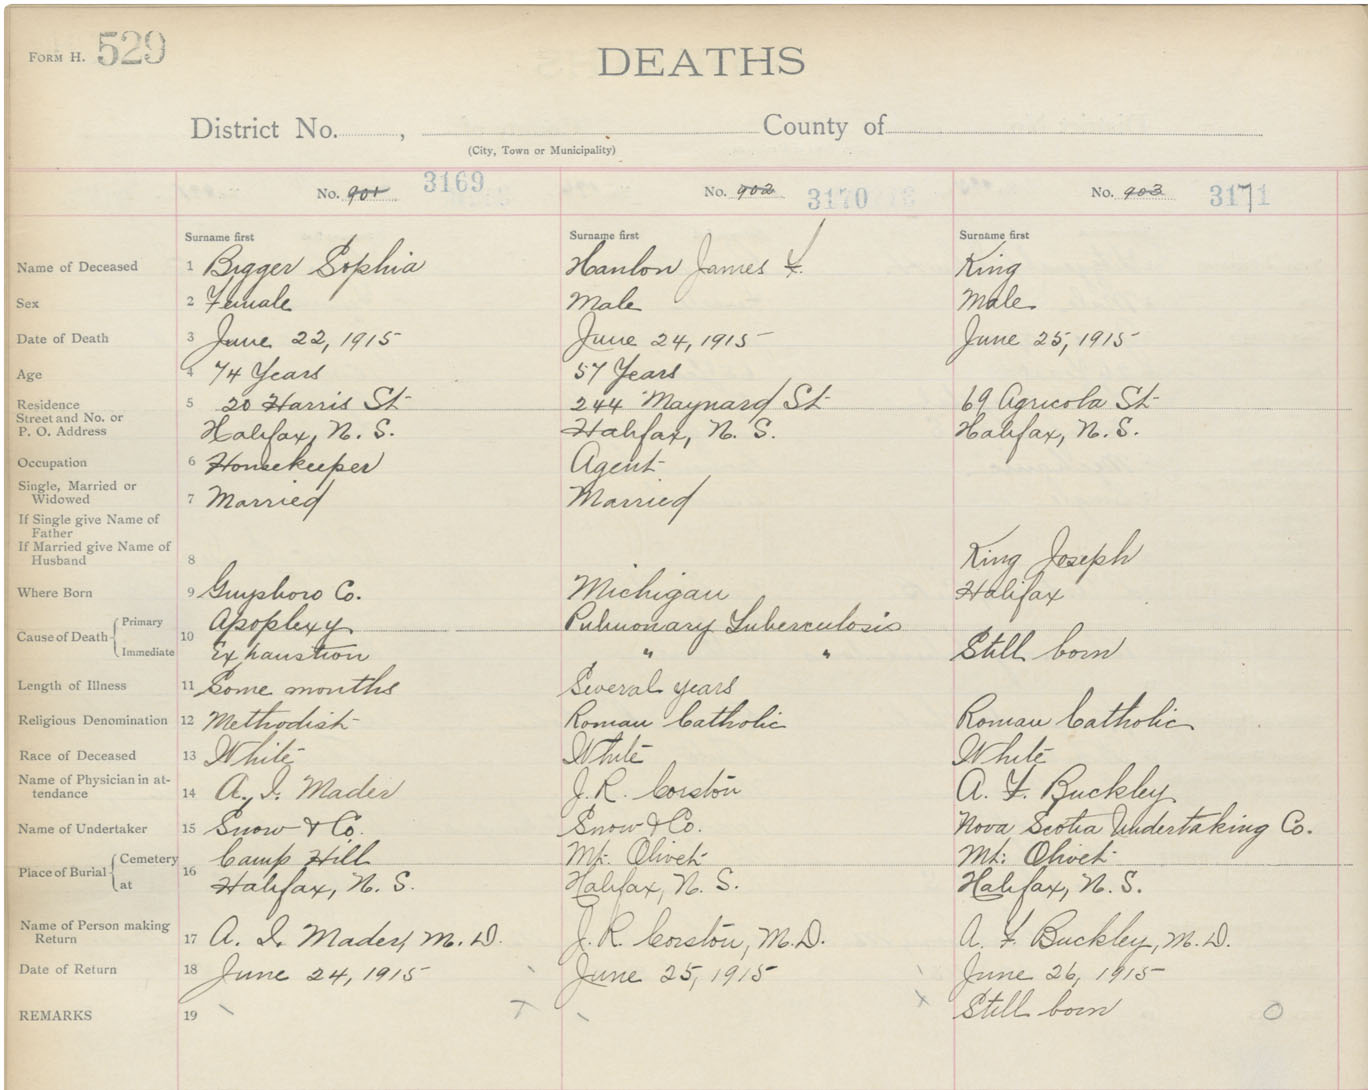 FORM H. 529
DEATHS
District No. , County of
(City, Town or Municipality)
No. 901 3169 No. 902 3170 No. 903 3171
Surname first Surname first Surname first
Name of Deceased 1 Bigger Sophia Hanlon James F. King
Sex 2 Female Male Male
Date of Death 3 June 22, 1915 June 24, 1915 June 25, 1915
Age 4 74 Years 57 Years
Residence 5 20 Harris St 244 Maynard St 69 Agricola St
Street and No. or
P. O. Address Halifax, N. S. Halifax, N. S. Halifax, N. S.
Occupation 6 Housekeeper Agent
Single, Married or
Widowed 7 Married Married
If Single give Name of
Father
If Married give Name of
Husband 8 King Joseph
Where Born 9 Guysboro Co. Michigan Halifax
Primary Apoplexy Pulmonary Tuberculosis
Cause of Death 10
Immediate Exhaustion " " Still born
Length of Illness 11 Some months Several years
Religious Denomination 12 Methodist Roman Catholic Roman Catholic
Race of Deceased 13 White White White
Name of Physician in at-
tendance 14 A. I. Mader J. R. Corston A. F. Buckley
Name of Undertaker 15 Snow & Co. Snow & Co. Nova Scotia Undertaking Co.
Cemetery Camp Hill Mt. Olivet Mt. Olivet
Place of Burial 16
at Halifax, N. S. Halifax, N. S. Halifax, N. S.
Name of Person making
Return 17 A. I. Mader, M. D. J. R. Corston, M.D. A. F. Buckley, M.D.
Date of Return 18 June 24, 1915 June 25, 1915 June 26, 1915
REMARKS 19 Still born